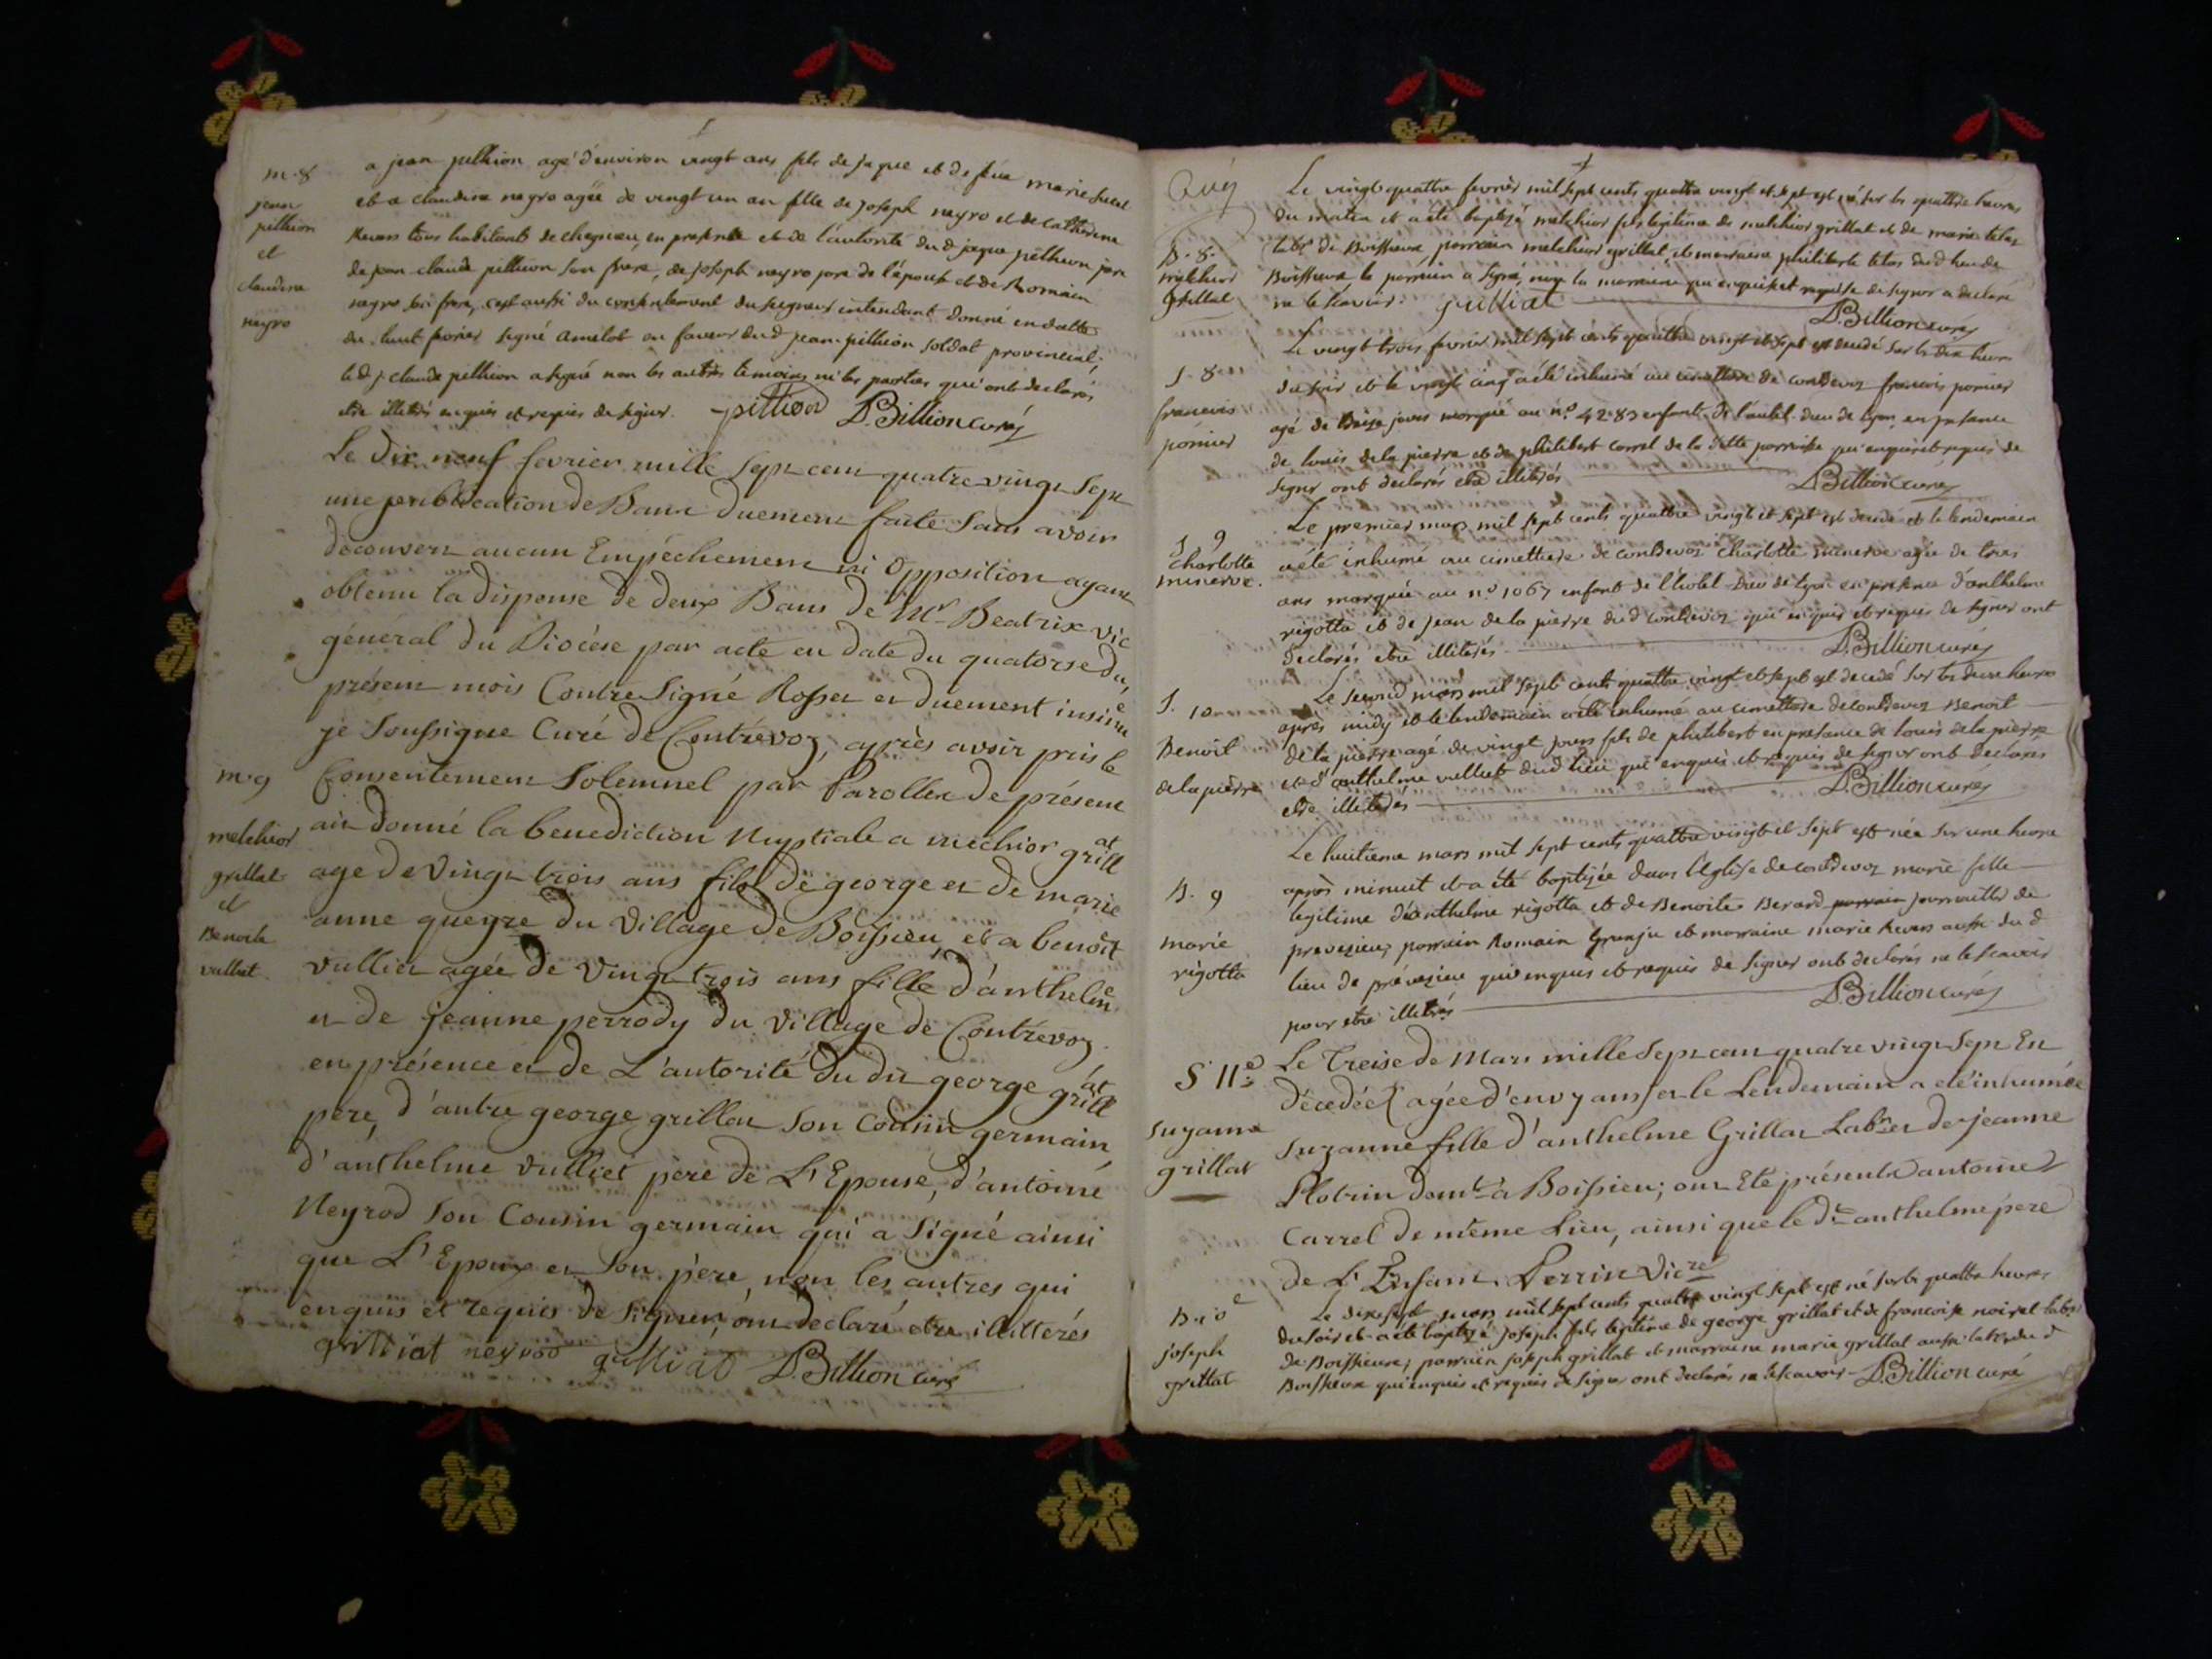 m. 8
jean
pillion
et
claudine
neyro
a jean pillion agé d'environ vingt ans fils de jaque et de feüe marie
et a claudine neyro agée de vingt un an fille de joseph neyro et de catherine
Revers tous habitants de cheyneu, en presence et de l'autorité dud jaque pillion pere
de jean claude pillion son frere, de joseph neyro pere de l'épouse et de Romain
neyro son frere, c'est aussi du consentement du seigneur intendant donné en datte
du huit fevrier signé amelot en faveur dud jean pillion soldat provincial;
led j. claude pillion a signé non les autres temoins ni les parties qui ont declarés
etre illiterés enquis et requis de signer. pillion D. Billion curé
Le Dix neuf fevrier mille sept cent quatre vingt sept
une publication de Bans duement faite Sans avoir
découvert aucun Empéchement ni Opposition ayant
obtenu la dispense de deux Bans de Mr Beatrix vic
général du Diocèse par acte en date du quatorse du
présent mois Contre Signé Rosset et duement insinué
je soussigné Curé de Contrevoz, après avoir pris le
m. 9
melchior
grillat
et
Benoite
vulliet
Consentement Solemnel par Parolles de présent
ait donné la benediction Nuptiale a mechior grillat
age de Vingt trois ans fils de george et de marie
anne gueyre du Village de Boissieu et a benoit
vulliet agée de vingt trois ans fille d'anthelme
et de jeanne perrody du Village de Contrevoz
en présence et de L'autorité du dit george grillat
père, d'autre george grillat son Cousin germain,
d'anthelme vulliet père de L'Epouse, d'antoine
Neyrod son Cousin germain qui a signé ainsi
que L'Epoux et son père, non les autres qui
enquis et requis de signer, ont declaré etre illitterés
grilliat neyrod grilliat D. Billion curé
B. 8.
melchior
grillat
Le vingt quattre fevrier mil sept cents quattre vingt et sept est né sur les quattre heures
du matin et a été baptizé melchior fils legitime de melchior grillat et de marie
labr de Boissieux parrain melchior grillat, et marraine philiberte dud lieu de
Boissieux le parrain a signé, non la marraine qui enquise et requise de signer a declaré
ne le scavoir. grilliat D. Billion curé
S. 8
francois
pornier
Le vingt trois fevrier mil sept cents quattre vingt et sept est decedé sur les dix heures
du soir et le vingt cinq a été inhumé au cimettiere de contrevoz francois pornier
agé de jours marqué au n.º 4283 enfant de l'hotel dieu de lyon en presence
de louis dela pierre et de philibert carrel de la ditte parroisse qui enquis et requis de
signer ont declarés etre illiterés D. Billion curé
S. 9
Charlotte
minerve.
Le premier mars mil sept cents quattre vingt et sept est decedé et le lendemain
a été inhumé au cimettiere de contrevoz Charlotte minerve agée de trois
ans marquée au n.º 1067 enfant de l'hotel Dieu de lyon en presence d'anthelme
rigotta et de jean de la pierre dud contrevoz qui enquis et requis de signer ont
declarés etre illiterés D. Billion curé
S. 10
Benoit
dela pierre
Le second mars mil sept cents quattre vingt et sept est decedé sur les deux heures
après midy et le lendemain a été inhumé au cimettiere de contrevoz Benoit
dela pierre agé de vingt jours fils de philibert en presence de louis dela pierre
et d'anthelme vulliet dud lieu qui enquis et requis de signer ont declarés
etre illiterés D. Billion curé
B. 9
marie
rigotta
Le huitieme mars mil sept cents quattre vingt et sept est née sur une heure
après minuit et a été baptizée dans l'église de contrevoz marie fille
legitime d'anthelme rigotta et de Benoite Berard parrain journailler de
prevezieu; parrain Romain Granju et marraine marie Revers aussi du d
lieu de prévezieu qui enquis et requis de signer ont declarés ne le scavoir
pour etre illitrés D. Billion curé
S 11e
suzanne
grillat
Le Treise de Mars mille sept cent quatre vingt sept En
décédée agée d'env 7 ans et le Lendemain a été inhumée
Suzanne fille d'anthelme Grillat Labr et de jeanne
Plotrin domt à Boissieu; ont Eté présents antoine
Carrel de même Lieu, ainsi que le dit anthelme père
de L'Enfant. Perrin Vicre
B. 10e
joseph
grillat
Le dix sept mars mil sept cents quattre vingt sept est né sur les quattre heures
du soir et a été baptizé joseph fils legitime de george grillat et de francoise noiret labr
de Boissieux; parrain joseph grillat et marraine marie grillat aussi labr du d
Boissieux qui enquis et requis de signer ont declarés ne le scavoir D. Billion curé